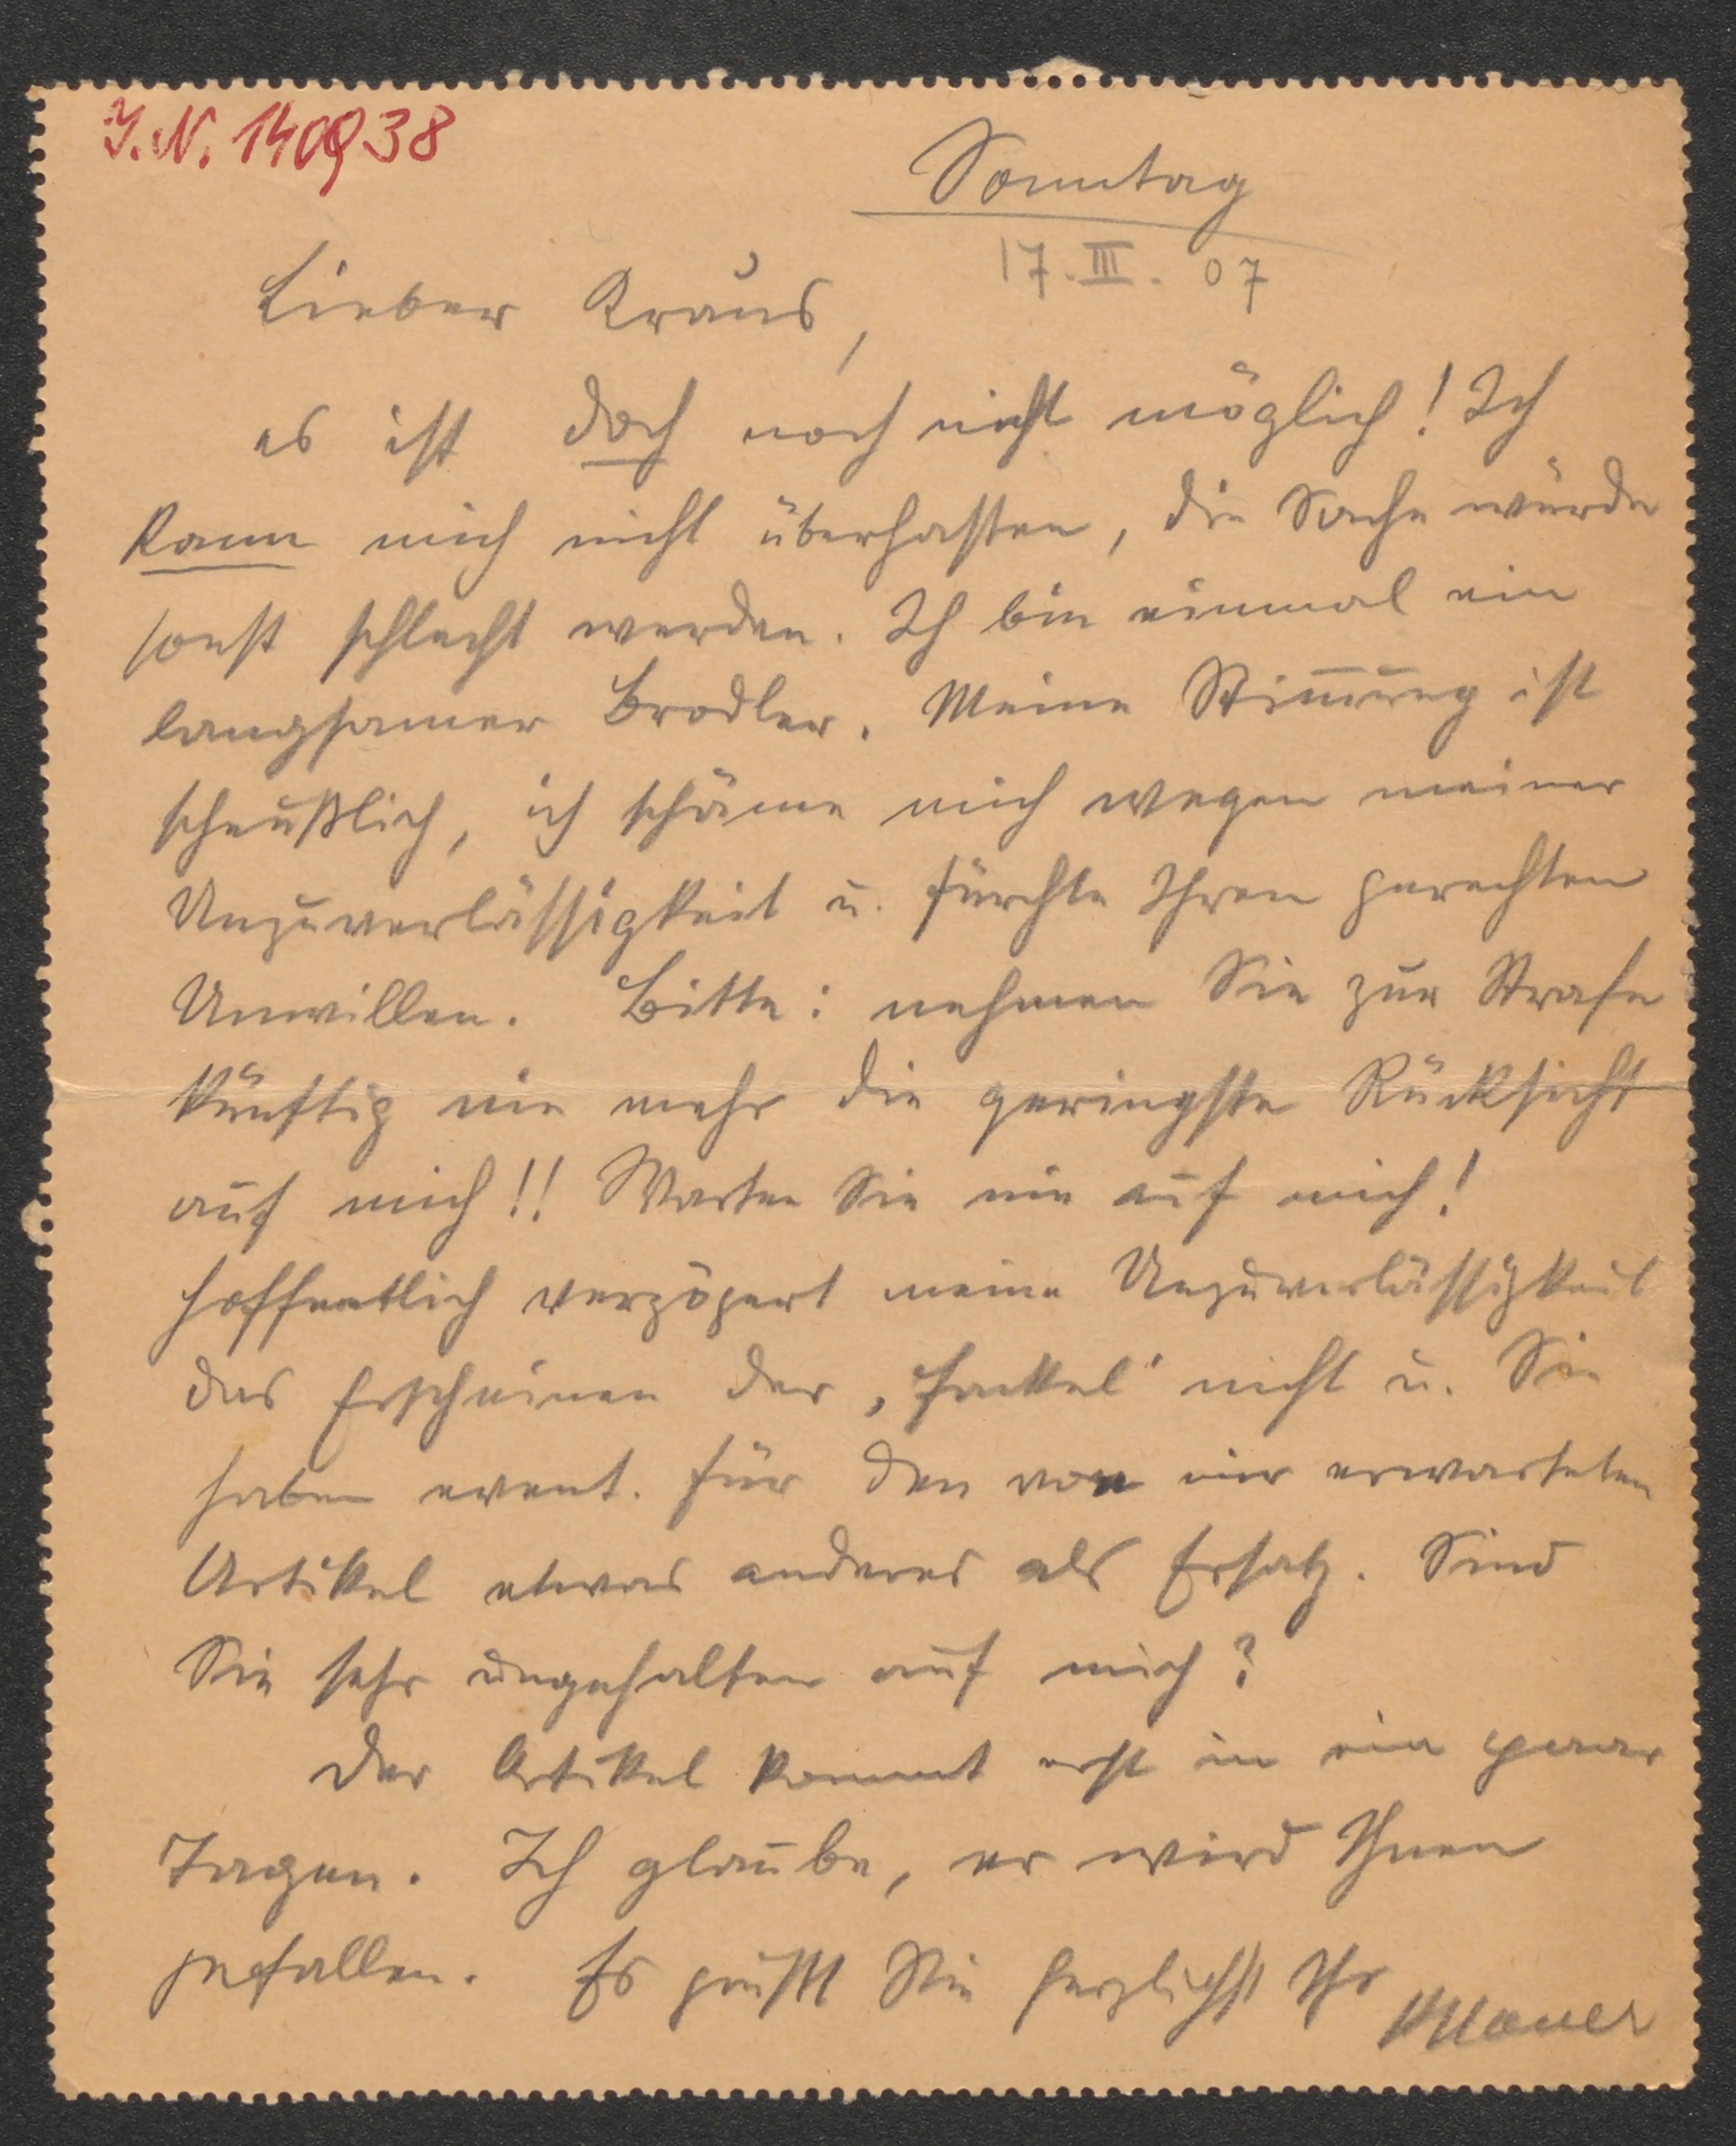 I.N. 140938
Sonntag
17. III. 07
Lieber Kraus,
es ist doch noch nicht möglich! Ich
kann mich nicht überhasten, die Sache würde
sonst schlecht werden. Ich bin einmal ein
langsamer Brodler. Meine Stim̄ung ist
scheußlich, ich schäme mich wegen meiner
Unzuverlässigkeit u. fürchte Ihren gerechten
Unwillen. Bitte: nehmen Sie zur Strafe
künftig nie mehr die geringste Rücksicht
auf mich!! Warten Sie nie auf mich!
Hoffentlich verzögert meine Unzuverlässigkeit
das Erscheinen der „Fackel“ nicht u. Sie
haben event. für den von mir erwarteten
Artikel etwas anderes als Ersatz. Sind
Sie sehr ungehalten auf mich?
Der Artikel kommt erst in ein paar
Tagen. Ich glaube, er wird Ihnen
gefallen. Es grüßt Sie herzlichst Ihr